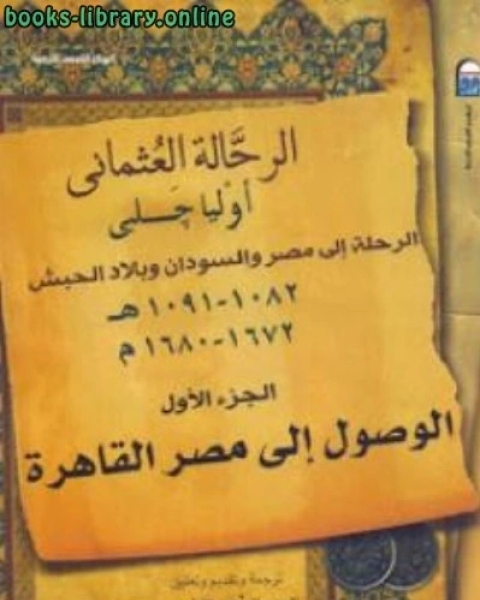 books-library.online
الرحَّالة العُثمانى
أوليا چَلبى
الرحلة إلى مصر والسودان وبلاد الحبش
١٠٨٢-١٠٩١ هـ
١٦٧٢-١٦٨٠ م
الجزء الأول
الوصول إلى مصر القاهرة
ترجمة وتقديم وتعليق